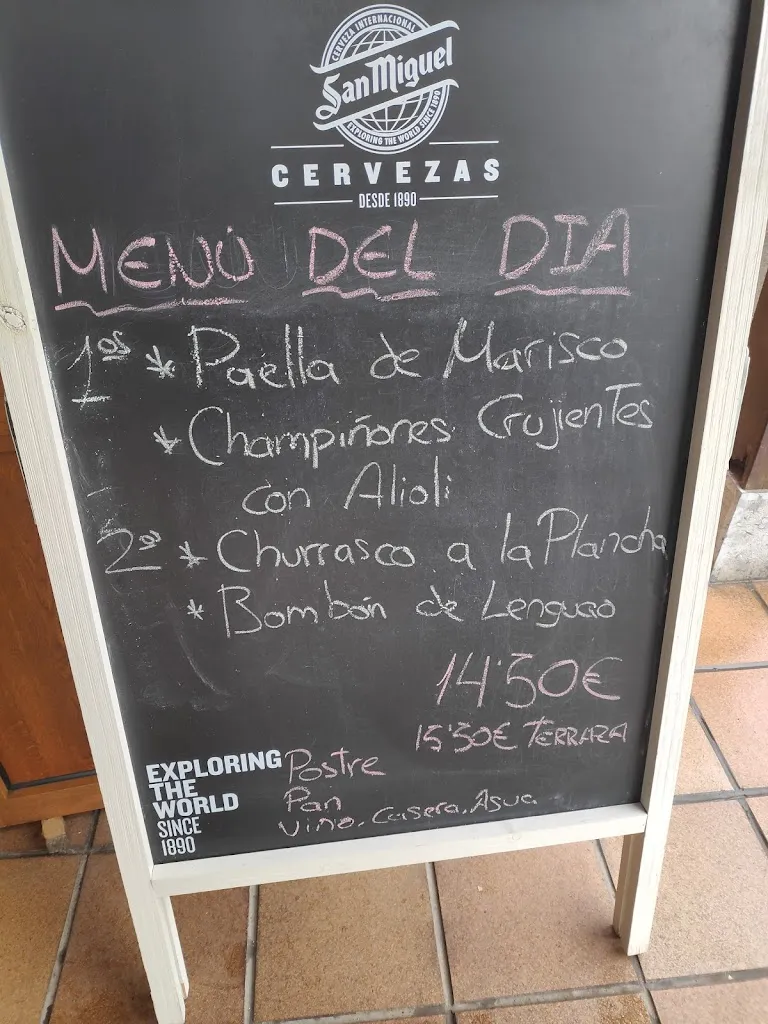 CERVEZA INTERNACIONAL
San Miguel
EXPLORING THE WORLD SINCE 1890
CERVEZAS
DESDE 1890
MENÚ DEL DIA
1os * Paella de Marisco
* Champiñones Crujientes
con Alioli
2os * Churrasco a la Plancha
* Bombón de Lenguao
14'50€
15'50€ TERRAZA
EXPLORING
THE
WORLD
SINCE
1890
Postre
Pan
Vino, Casera, Agua